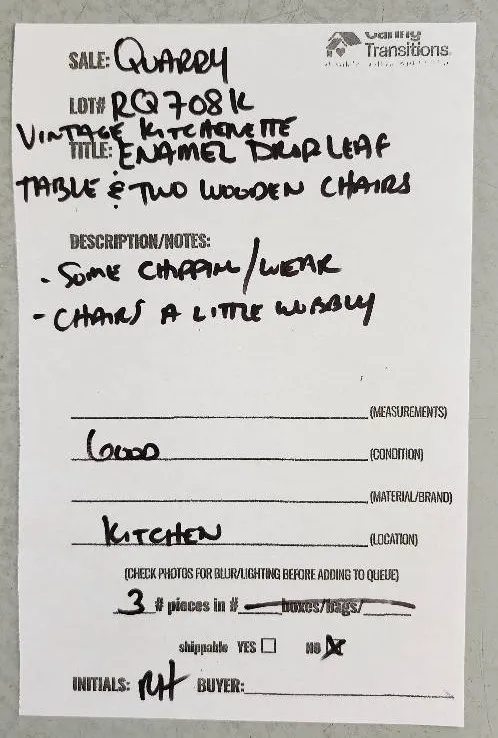 Caring
Transitions
SALE: QUARRY
LOT# RQ708K
VINTAGE KITCHENETTE
TITLE: ENAMEL DROP LEAF
TABLE & TWO WOODEN CHAIRS
DESCRIPTION/NOTES:
- SOME CHIPPING/WEAR
- CHAIRS A LITTLE WOBBLY
(MEASUREMENTS)
GOOD (CONDITION)
(MATERIAL/BRAND)
KITCHEN (LOCATION)
(CHECK PHOTOS FOR BLUR/LIGHTING BEFORE ADDING TO QUEUE)
3 # pieces in # boxes/bags/
shippable YES ☐ NO ☒
INITIALS: RH BUYER: